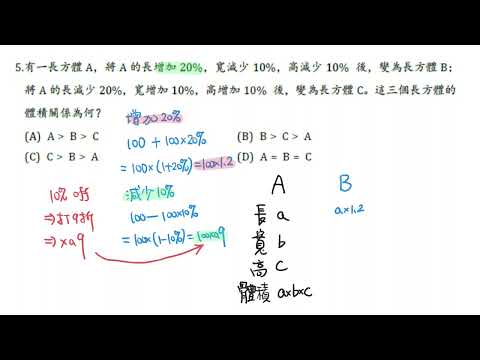 5.有一長方體 A，將 A 的長增加 20%，寬減少 10%，高減少 10% 後，變為長方體 B；
將 A 的長減少 20%，寬增加 10%，高增加 10% 後，變為長方體 C。這三個長方體的
體積關係為何？
(A) A > B > C
(B) B > C > A
(C) C > B > A
(D) A = B = C
增加20%
100 + 100×20%
= 100×(1+20%) = 100×1.2
減少10%
100 - 100×10%
= 100×(1-10%) = 100×0.9
10% off
⇒打9折
⇒×0.9
A B
長 a a×1.2
寬 b
高 c
體積 a×b×c